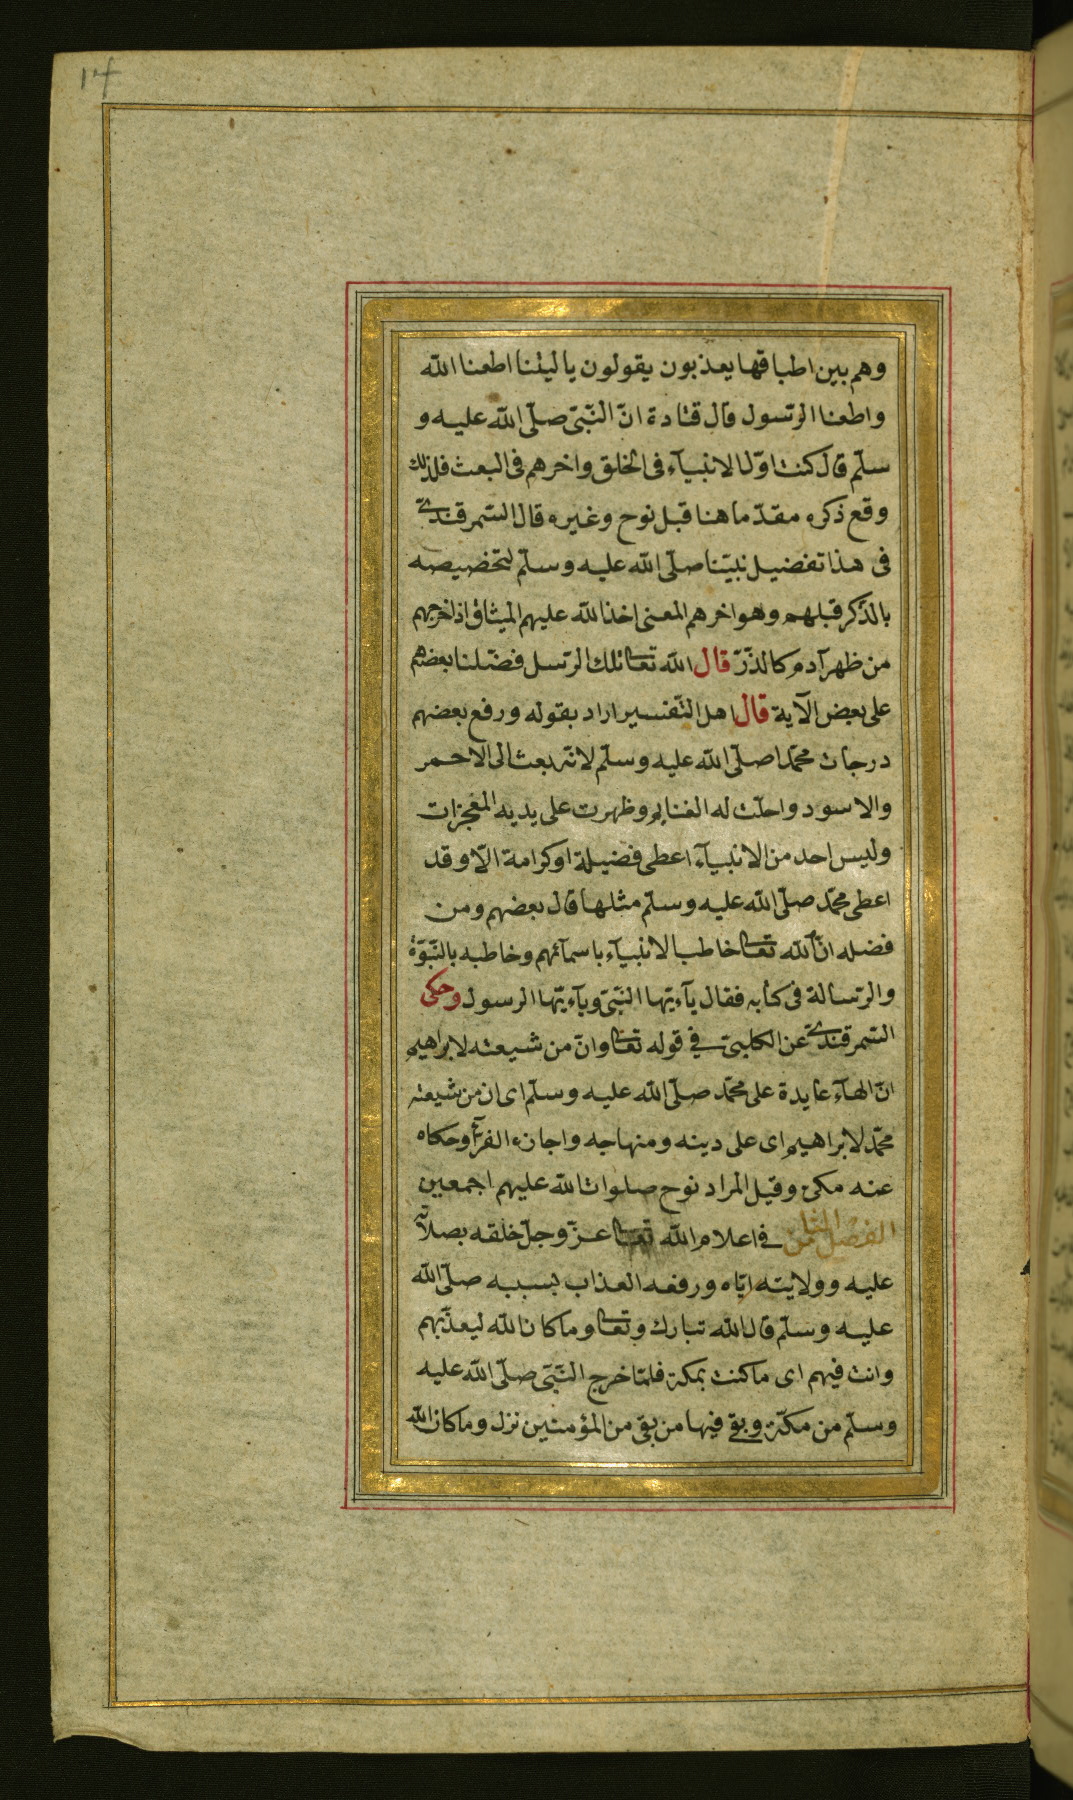 ١٤
وهم بين اطباقها يعذبون يقولون يا ليتنا اطعنا الله
واطعنا الرّسول قال قتادة انّ النّبىّ صلّى الله عليه و
سلّم قال كنت اوّل الانبيآء فى الخلق واخرهم فى البعث فلذلك
وقع ذكره مقدّما هنا قبل نوح وغيره قال السّمرقندىّ
فى هذا تفضيل نبيّنا صلّى الله عليه وسلّم لتخصيصه
بالذّكر قبلهم وهو اخرهم المعنى اخذ الله عليهم الميثاق اذ اخرجهم
من ظهر آدم كالذّرّ قال الله تعالى تلك الرّسل فضّلنا بعضهم
على بعض الآية قال اهل التّفسير اراد بقوله ورفع بعضهم
درجات محمّدا صلّى الله عليه وسلّم لانّه بعث الى الاحمر
والاسود واحلّت له الغنايم وظهرت على يديه المعجزات
وليس احد من الانبيآء اعطى فضيلة او كرامة الّا وقد
اعطى محمّد صلّى الله عليه وسلّم مثلها قال بعضهم ومن
فضله انّ الله تعالى خاطب الانبيآء باسمآئهم وخاطبه بالنّبوّة
والرّسالة فى كتابه فقال يآءيّها النّبىّ ويآءيّها الرسول وحكى
السّمرقندىّ عن الكلبىّ فى قوله تعالى وانّ من شيعته لابراهيم
انّ الهآء عايدة على محمّد صلّى الله عليه وسلّم اى ان من شيعته
محمّد لابراهيم اى على دينه ومنهاجه واجازه الفرّآء وحكاه
عنه مكى وقيل المراد نوح صلوات الله عليهم اجمعين
الفصل الثامن فى اعلام الله تعالى عزّ وجلّ خلقه بصلاته
عليه وولايته ايّاه ورفعه العذاب بسببه صلّى الله
عليه وسلّم قال الله تبارك وتعالى وما كان الله ليعذّبهم
وانت فيهم اى ما كنت بمكة فلمّا خرج النّبى صلّى الله عليه
وسلّم من مكّة وبقى فيها من بقى من المؤمنين نزل وما كان الله